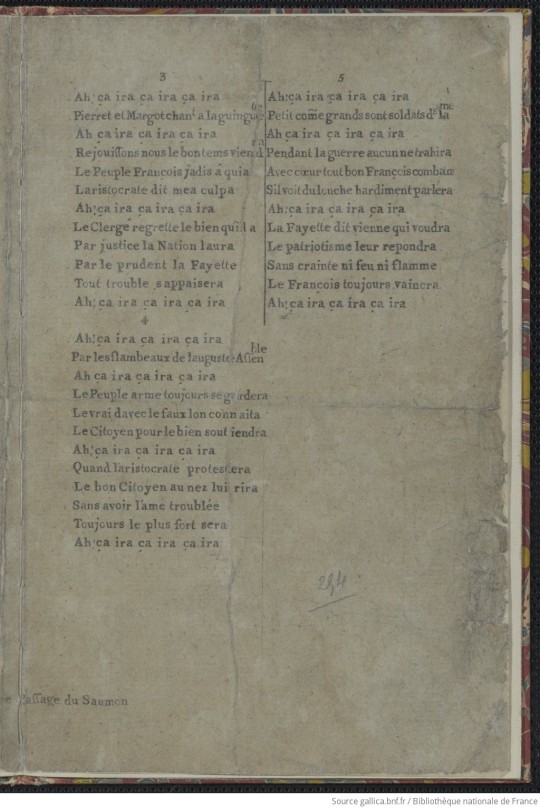 3
Ah! ça ira ça ira ça ira
Pierret et Margot chant a la guinguette
Ah ça ira ça ira ça ira
Rejouissons nous le bon tems viendra
Le Peuple François jadis a quia
Laristocrate dit mea culpa
Ah! ça ira ça ira ça ira
Le Clerge regrette le bien quil a
Par justice la Nation laura
Par le prudent la Fayette
Tout trouble sappaisera
Ah! ça ira ça ira ça ira
4
Ah! ça ira ça ira ça ira
Par les flambeaux de lauguste Assemble
Ah ça ira ça ira ça ira
Le Peuple arme toujours se gardera
Le vrai davec le faux lon connaita
Le Citoyen pour le bien soutiendra
Ah! ça ira ça ira ça ira
Quand laristocrate protestera
Le bon Citoyen au nez lui rira
Sans avoir l'ame troublée
Toujours le plus fort sera
Ah! ça ira ça ira ça ira
5
Ah! ça ira ça ira ça ira
Petit come grands sont soldats dans lame
Ah! ça ira ça ira ça ira
Pendant la guerre aucun ne trahira
Avec cœur tout bon François combatra
Sil voit du louche hardiment parlera
Ah! ça ira ça ira ça ira
La Fayette dit vienne qui voudra
Le patriotisme leur repondra
Sans crainte ni feu ni flamme
Le François toujours vaincra
Ah! ça ira ça ira ça ira
294
Passage du Saumon
Source gallica.bnf.fr / Bibliothèque nationale de France